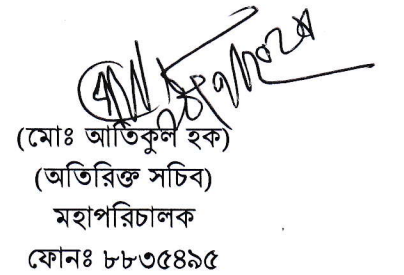 (মোঃ আতিকুল হক)
(অতিরিক্ত সচিব)
মহাপরিচালক
ফোনঃ ৮৮৩৫৪৯৫